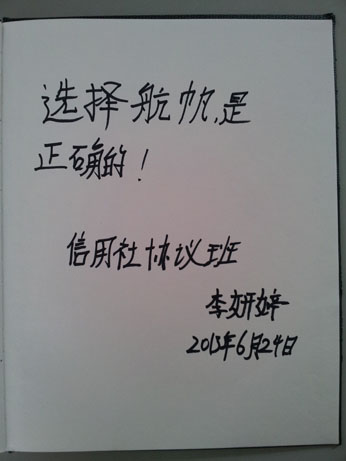 选择航帆,是
正确的!
信用社协议班
李妍婷
2013年6月24日